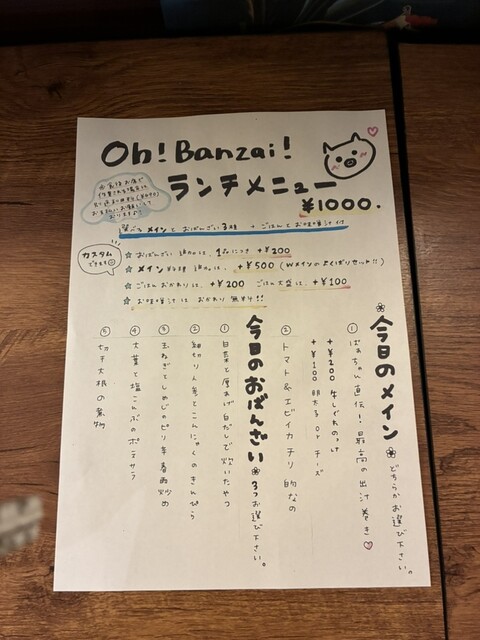 Oh! Banzai!
ランチメニュー
¥1000.
選べるメインとおばんざい3種 + ごはんとお味噌汁付
カスタムできます
☆ おばんざい追加は、1品につき +¥200
☆ メイン 追加は、+¥500 (Wメインのよくばりセット!!)
☆ ごはんおかわりは、+¥200 ごはん大盛は、+¥100
☆ お味噌汁は おかわり無料!!
今日のメイン どちらかお選び下さい。
① ばあちゃん直伝!最高の出汁巻き♡
+¥200 牛しぐれのっけ
+¥100 明太子 or チーズ
② トマト&エビイカチリ的なの
今日のおばんざい 3つお選び下さい。
① 白菜と厚あげ白だしで炊いたやつ
② 細切り人参とこんにゃくのきんぴら
③ 玉ねぎとしめじのピリ辛春雨炒め
④ 大葉と塩こんぶのポテサラ
⑤ 切干大根の煮物